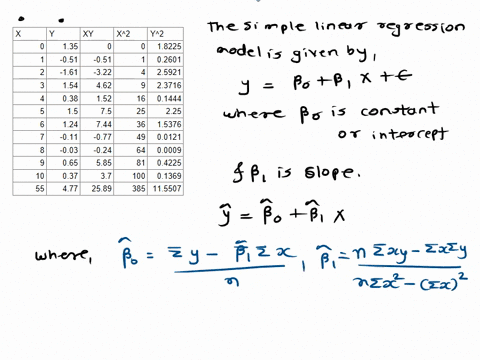 X Y XY X^2 Y^2
0 1.35 0 0 1.8225
1 -0.51 -0.51 1 0.2601
2 -1.61 -3.22 4 2.5921
3 1.54 4.62 9 2.3716
4 0.38 1.52 16 0.1444
5 1.5 7.5 25 2.25
6 1.24 7.44 36 1.5376
7 -0.11 -0.77 49 0.0121
8 -0.03 -0.24 64 0.0009
9 0.65 5.85 81 0.4225
10 0.37 3.7 100 0.1369
55 4.77 25.89 385 11.5507
The simple linear regression
model is given by,
y = β0 + β1 x + ε
where β0 is constant
or intercept
& β1 is slope.
ŷ = β̂0 + β̂1 x
where, β̂0 = (Σy - β̂1 Σx) / n , β̂1 = (n Σxy - Σx Σy) / (n Σx² - (Σx)²)